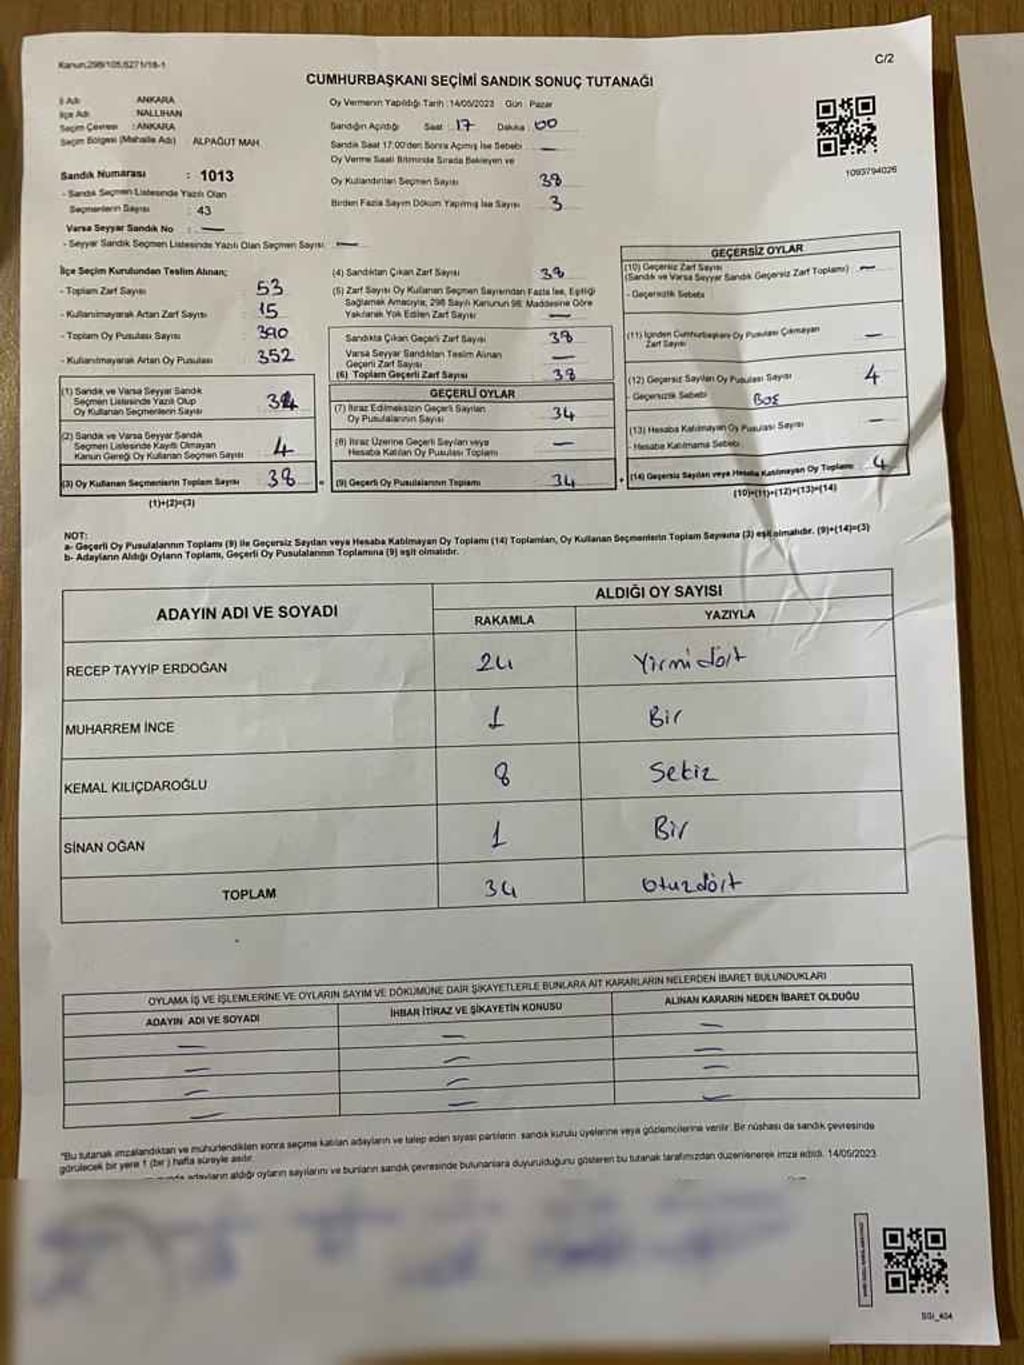 Kanun:298/105,6271/18-1
C/2
CUMHURBAŞKANI SEÇİMİ SANDIK SONUÇ TUTANAĞI
İl Adı : ANKARA
İlçe Adı : NALLIHAN
Seçim Çevresi : ANKARA
Seçim Bölgesi (Mahalle Adı) ALPAĞUT MAH.
Sandık Numarası : 1013
- Sandık Seçmen Listesinde Yazılı Olan
Seçmenlerin Sayısı : 43
Varsa Seyyar Sandık No : —
- Seyyar Sandık Seçmen Listesinde Yazılı Olan Seçmen Sayısı : —
Oy Vermenin Yapıldığı Tarih :14/05/2023 Gün : Pazar
Sandığın Açıldığı Saat : 17 Dakika : 00
Sandık Saat 17:00'den Sonra Açılmış İse Sebebi : —
Oy Verme Saati Bitiminde Sırada Bekleyen ve
Oy Kullandırılan Seçmen Sayısı 38
Birden Fazla Sayım Döküm Yapılmış İse Sayısı 3
1093794026
İlçe Seçim Kurulundan Teslim Alınan;
- Toplam Zarf Sayısı : 53
- Kullanılmayarak Artan Zarf Sayısı : 15
- Toplam Oy Pusulası Sayısı : 390
- Kullanılmayarak Artan Oy Pusulası : 352
(1) Sandık ve Varsa Seyyar Sandık
Seçmen Listesinde Yazılı Olup
Oy Kullanan Seçmenlerin Sayısı 34
(2) Sandık ve Varsa Seyyar Sandık
Seçmen Listesinde Kayıtlı Olmayan
Kanun Gereği Oy Kullanan Seçmen Sayısı 4
(3) Oy Kullanan Seçmenlerin Toplam Sayısı 38
(1)+(2)=(3)
(4) Sandıktan Çıkan Zarf Sayısı 38
(5) Zarf Sayısı Oy Kullanan Seçmen Sayısından Fazla İse, Eşitliği
Sağlamak Amacıyla, 298 Sayılı Kanunun 98. Maddesine Göre
Yakılarak Yok Edilen Zarf Sayısı —
Sandıkta Çıkan Geçerli Zarf Sayısı 38
Varsa Seyyar Sandıktan Teslim Alınan
Geçerli Zarf Sayısı —
(6) Toplam Geçerli Zarf Sayısı 38
GEÇERLİ OYLAR
(7) İtiraz Edilmeksizin Geçerli Sayılan
Oy Pusulalarının Sayısı 34
(8) İtiraz Üzerine Geçerli Sayılan veya
Hesaba Katılan Oy Pusulası Toplamı —
(9) Geçerli Oy Pusulalarının Toplamı 34
GEÇERSİZ OYLAR
(10) Geçersiz Zarf Sayısı
(Sandık ve Varsa Seyyar Sandık Geçersiz Zarf Toplamı) —
- Geçersizlik Sebebi
(11) İçinden Cumhurbaşkanı Oy Pusulası Çıkmayan
Zarf Sayısı —
(12) Geçersiz Sayılan Oy Pusulası Sayısı 4
- Geçersizlik Sebebi BOŞ
(13) Hesaba Katılmayan Oy Pusulası Sayısı —
- Hesaba Katılmama Sebebi
(14) Geçersiz Sayılan veya Hesaba Katılmayan Oy Toplamı 4
(10)+(11)+(12)+(13)=(14)
NOT:
a- Geçerli Oy Pusulalarının Toplamı (9) ile Geçersiz Sayılan veya Hesaba Katılmayan Oy Toplamı (14) Toplamları, Oy Kullanan Seçmenlerin Toplam Sayısına (3) eşit olmalıdır. (9)+(14)=(3)
b- Adayların Aldığı Oyların Toplamı, Geçerli Oy Pusulalarının Toplamına (9) eşit olmalıdır.
ADAYIN ADI VE SOYADI
ALDIĞI OY SAYISI
RAKAMLA YAZIYLA
RECEP TAYYİP ERDOĞAN 24 Yirmi dört
MUHARREM İNCE 1 Bir
KEMAL KILIÇDAROĞLU 8 Sekiz
SİNAN OĞAN 1 Bir
TOPLAM 34 Otuzdört
OYLAMA İŞ VE İŞLEMLERİNE VE OYLARIN SAYIM VE DÖKÜMÜNE DAİR ŞİKAYETLERLE BUNLARA AİT KARARLARIN NELERDEN İBARET BULUNDUKLARI
ADAYIN ADI VE SOYADI İHBAR İTİRAZ VE ŞİKAYETİN KONUSU ALINAN KARARIN NEDEN İBARET OLDUĞU
— — —
— — —
— — —
— — —
"Bu tutanak imzalandıktan ve mühürlendikten sonra seçime katılan adayların ve talep eden siyasi partilerin sandık kurulu üyelerine veya gözlemcilerine verilir. Bir nüshası da sandık çevresinde
görülecek bir yere 1 (bir ) hafta süreyle asılır.
adayların aldığı oyların sayılarını ve bunların sandık çevresinde bulunanlara duyurulduğunu gösteren bu tutanak tarafımızdan düzenlenerek imza edildi. 14/05/2023
SGI_404